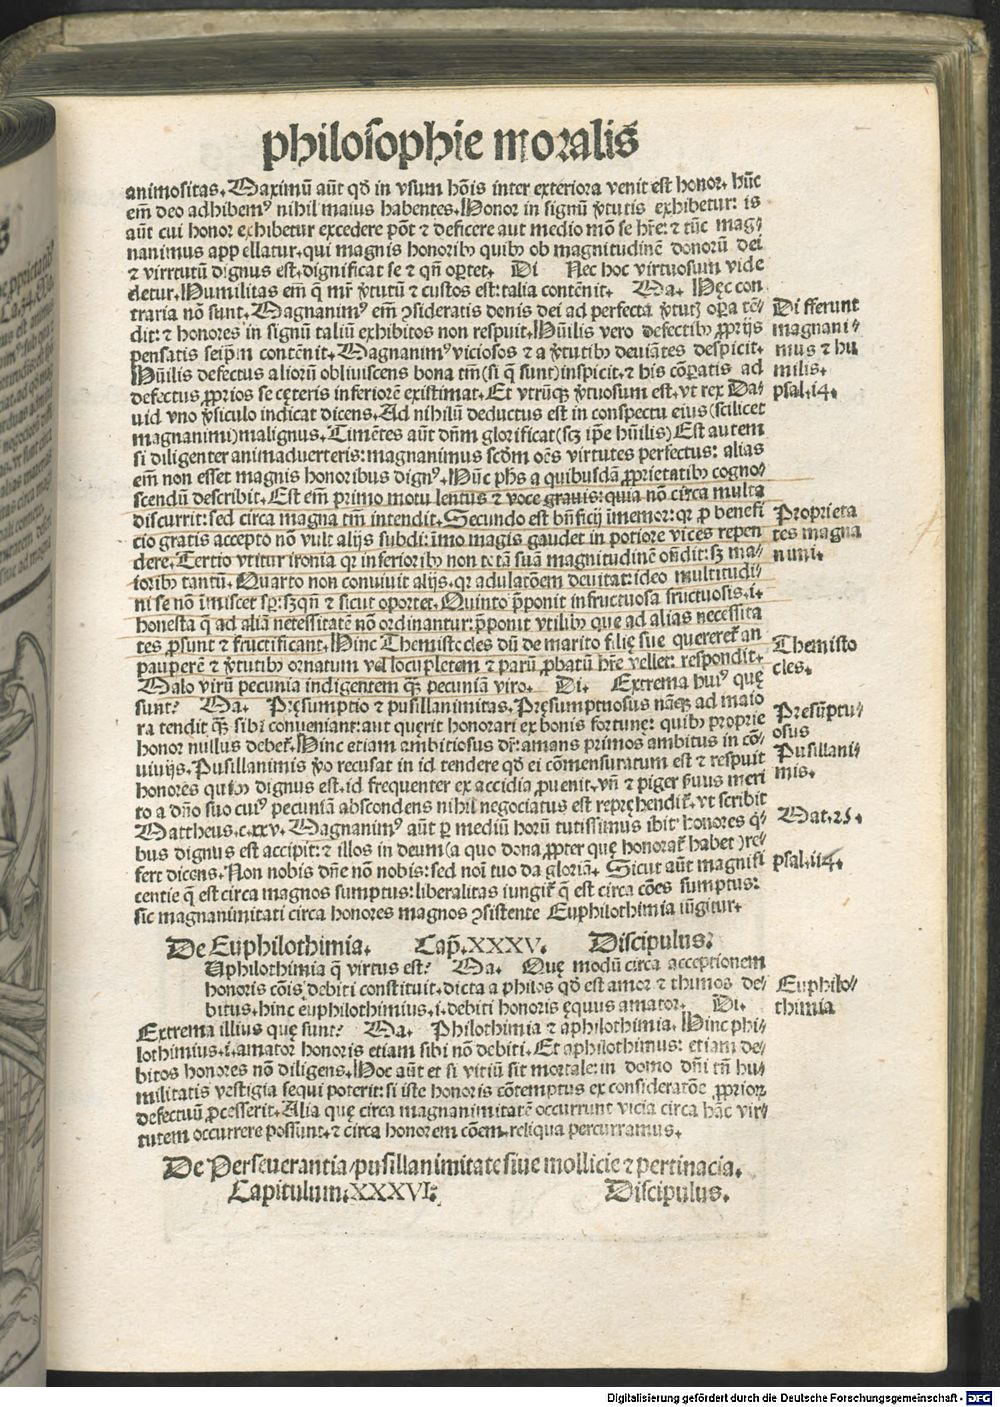 philosophie moralis
animositas. Maximū aūt qd̄ in vsum hōis inter exteriora venit est honor. hūc
em̄ deo adhibemꝰ nihil maius habentes. Honor in signū v̄tutis exhibetur: is
aūt cui honor exhibetur excedere pōt ⁊ deficere aut medio mō se hr̄e: ⁊ tūc mag⸗
nanimus appellatur. qui magnis honoribꝫ quibꝫ ob magnitudinē donorū dei
⁊ virrtutū dignus est. dignificat se ⁊ qn̄ oꝑtet. Di Nec hoc virtuosum vide
detur. Humilitas em̄ q̄ mr̄ v̄tutū ⁊ custos est: talia contēnit. Ma. Hęc con
traria nō sunt. Magnanimꝰ em̄ ꝯsideratis donis dei ad perfecta v̄tutꝫ oꝑa tē⸗
dit: ⁊ honores in signū taliū exhibitos non respuit. Hūilis vero defectibꝫ ꝓprijs
pensatis seip̄m contēnit. Magnanimꝰ viciosos ⁊ a v̄tutibꝫ deuiātes despicit.
Hūilis defectus aliorū obliuiscens bona tm̄ (si q̄ sunt) inspicit. ⁊ his cōꝑatis ad
defectus ꝓprios se cęteris inferiorē existimat. Et vtrūqꝫ v̄tuosum est. vt rex Da⸗
uid vno v̄siculo indicat dicens. Ad nihilū deductus est in conspectu eius (scilicet
magnanimi) malignus. Timētes aūt dn̄m glorificat (scꝫ ip̄e hūilis) Est autem
si diligenter animaduerteris: magnanimus scd̄m oēs virtutes perfectus: alias
em̄ non esset magnis honoribus dignꝰ. Hūc ph̄s a quibusdā ꝓprietatibꝫ cogno⸗
scendū describit. Est em̄ primo motu lentus ⁊ voce grauis: quia nō circa multa
discurrit: sed circa magna tm̄ intendit. Secundo est bn̄ficij īmemor: qꝛ ꝓ benefi
cio gratis accepto nō vult alijs subdi: īmo magis gaudet in potiore vices repen
dere. Tertio vtitur ironia qꝛ inferioribꝫ non totā suā magnitudinē on̄dit: sꝫ ma⸗
ioribꝫ tantū. Quarto non conuiuit alijs. qꝛ adulatōem deuitat: ideo multitudi⸗
ni se nō īmiscet sp̄: sꝫ qn̄ ⁊ sicut oportet. Quinto p̄ponit infructuosa fructuosis. i.
honesta q̄ ad aliā necessitatē nō ordinantur: p̄ponit vtilibꝫ que ad alias necessita
tes ꝓsunt ⁊ fructificant. Hinc Themistocles dū de marito filię sue quereret̄ an
pauperē ⁊ v̄tutibꝫ ornatum vel locupletem ⁊ parū ꝓbatū hr̄e vellet: respondit.
Malo virū pecunia indigentem qꝫ̄ pecuniā viro. Di. Extrema huiꝰ quę
sunt? Ma. Pręsumptio ⁊ pusillanimitas. Pręsumptuosus nāqꝫ ad maio
ra tendit qꝫ̄ sibi conueniant: aut querit honorari ex bonis fortunę: quibꝫ proprie
honor nullus debet̄. Hinc etiam ambitiosus dr̄: amans primos ambitus in cō⸗
uiuijs. Pusillanimis v̄o recusat in id tendere qd̄ ei cōmensuratum est ⁊ respuit
honores quibꝫ dignus est. id frequenter ex accidia ꝓuenit. vn̄ ⁊ piger s̄uus meri
to a dn̄o suo cuiꝰ pecuniā abscondens nihil negociatus est repręhendit̄. vt scribit
Mattheus. c. xxv. Magnanimꝰ aūt ꝑ mediū horū tutissimus ibit: honores q̄⸗
bus dignus est accipit: ⁊ illos in deum (a quo dona ꝓpter quę honorat̄ habet) re⸗
fert dicens. Non nobis dn̄e nō nobis: sed noī tuo da gloriā. Sicut aūt magnifi
centie q̄ est circa magnos sumptus: liberalitas iungit̄ q̄ est circa cōes sumptus:
sic magnanimitati circa honores magnos ꝯsistente Euphilothimia iūgitur.
De Euphilothimia. Cap̄. XXXV. Discipulus.
Uphilothimia q̄ virtus est? Ma. Quę modū circa acceptionem
honoris cōis debiti constituit. dicta a philos qd̄ est amor ⁊ thimos de⸗
bitus. hinc euphilothimius. i. debiti honoris ęquus amator. Di.
Extrema illius quę sunt? Ma. Philothimia ⁊ aphilothimia. Hinc phi⸗
lothimius. i. amator honoris etiam sibi nō debiti. Et aphilothimus: etiam de⸗
bitos honores nō diligens. Hoc aūt et si vitiū sit mortale: in domo dn̄i tn̄ hu⸗
militatis vestigia sequi poterit: si iste honoris cōtemptus ex consideratōe ꝓprioꝝ
defectuū ꝓcesserit. Alia quę circa magnanimitatē occurrunt vicia circa hāc vir⸗
tutem occurrere possūnt. ⁊ circa honorem cōem. reliqua percurramus.
De Perseuerantia / pusillanimitate siue mollicie ⁊ pertinacia.
Capitulum. XXXVI. Discipulus.
Di fferunt
magnani⸗
mus ⁊ hu
milis.
psal. 14.
Proprieta
tes magna
nimi.
Themisto
cles.
Presūptu⸗
osus
Pusillani⸗
mis.
Mat. 25.
psal. 114.
Euphilo⸗
thimia
Digitalisierung gefördert durch die Deutsche Forschungsgemeinschaft - DFG